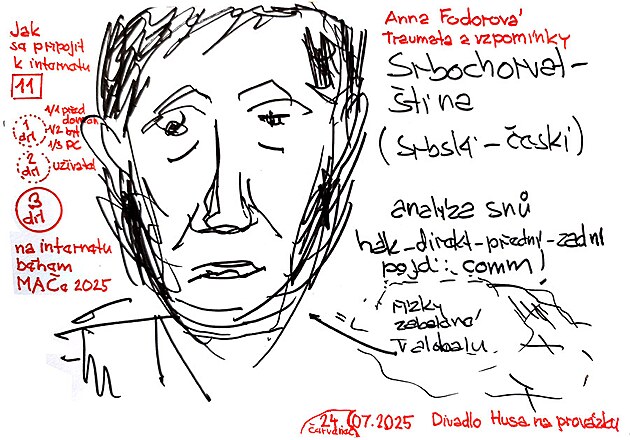 Jak
sa pripojit
k internatu
11
1/1 před
domem
1/2 byt
1/3 PC
1
drl
2
drl
uživatal
3
drl
na internatu
baham
MAČa 2025
Anna Fodorová
Traumata a vzpomínky
Srbochorvat-
ština
(srbski-časki)
analýza snů
hák-dirakt-přadní-zadní
pojd:
Řízky
zabaldná
v alobalu
24.
07.2025
Divadlo Husa na provázku